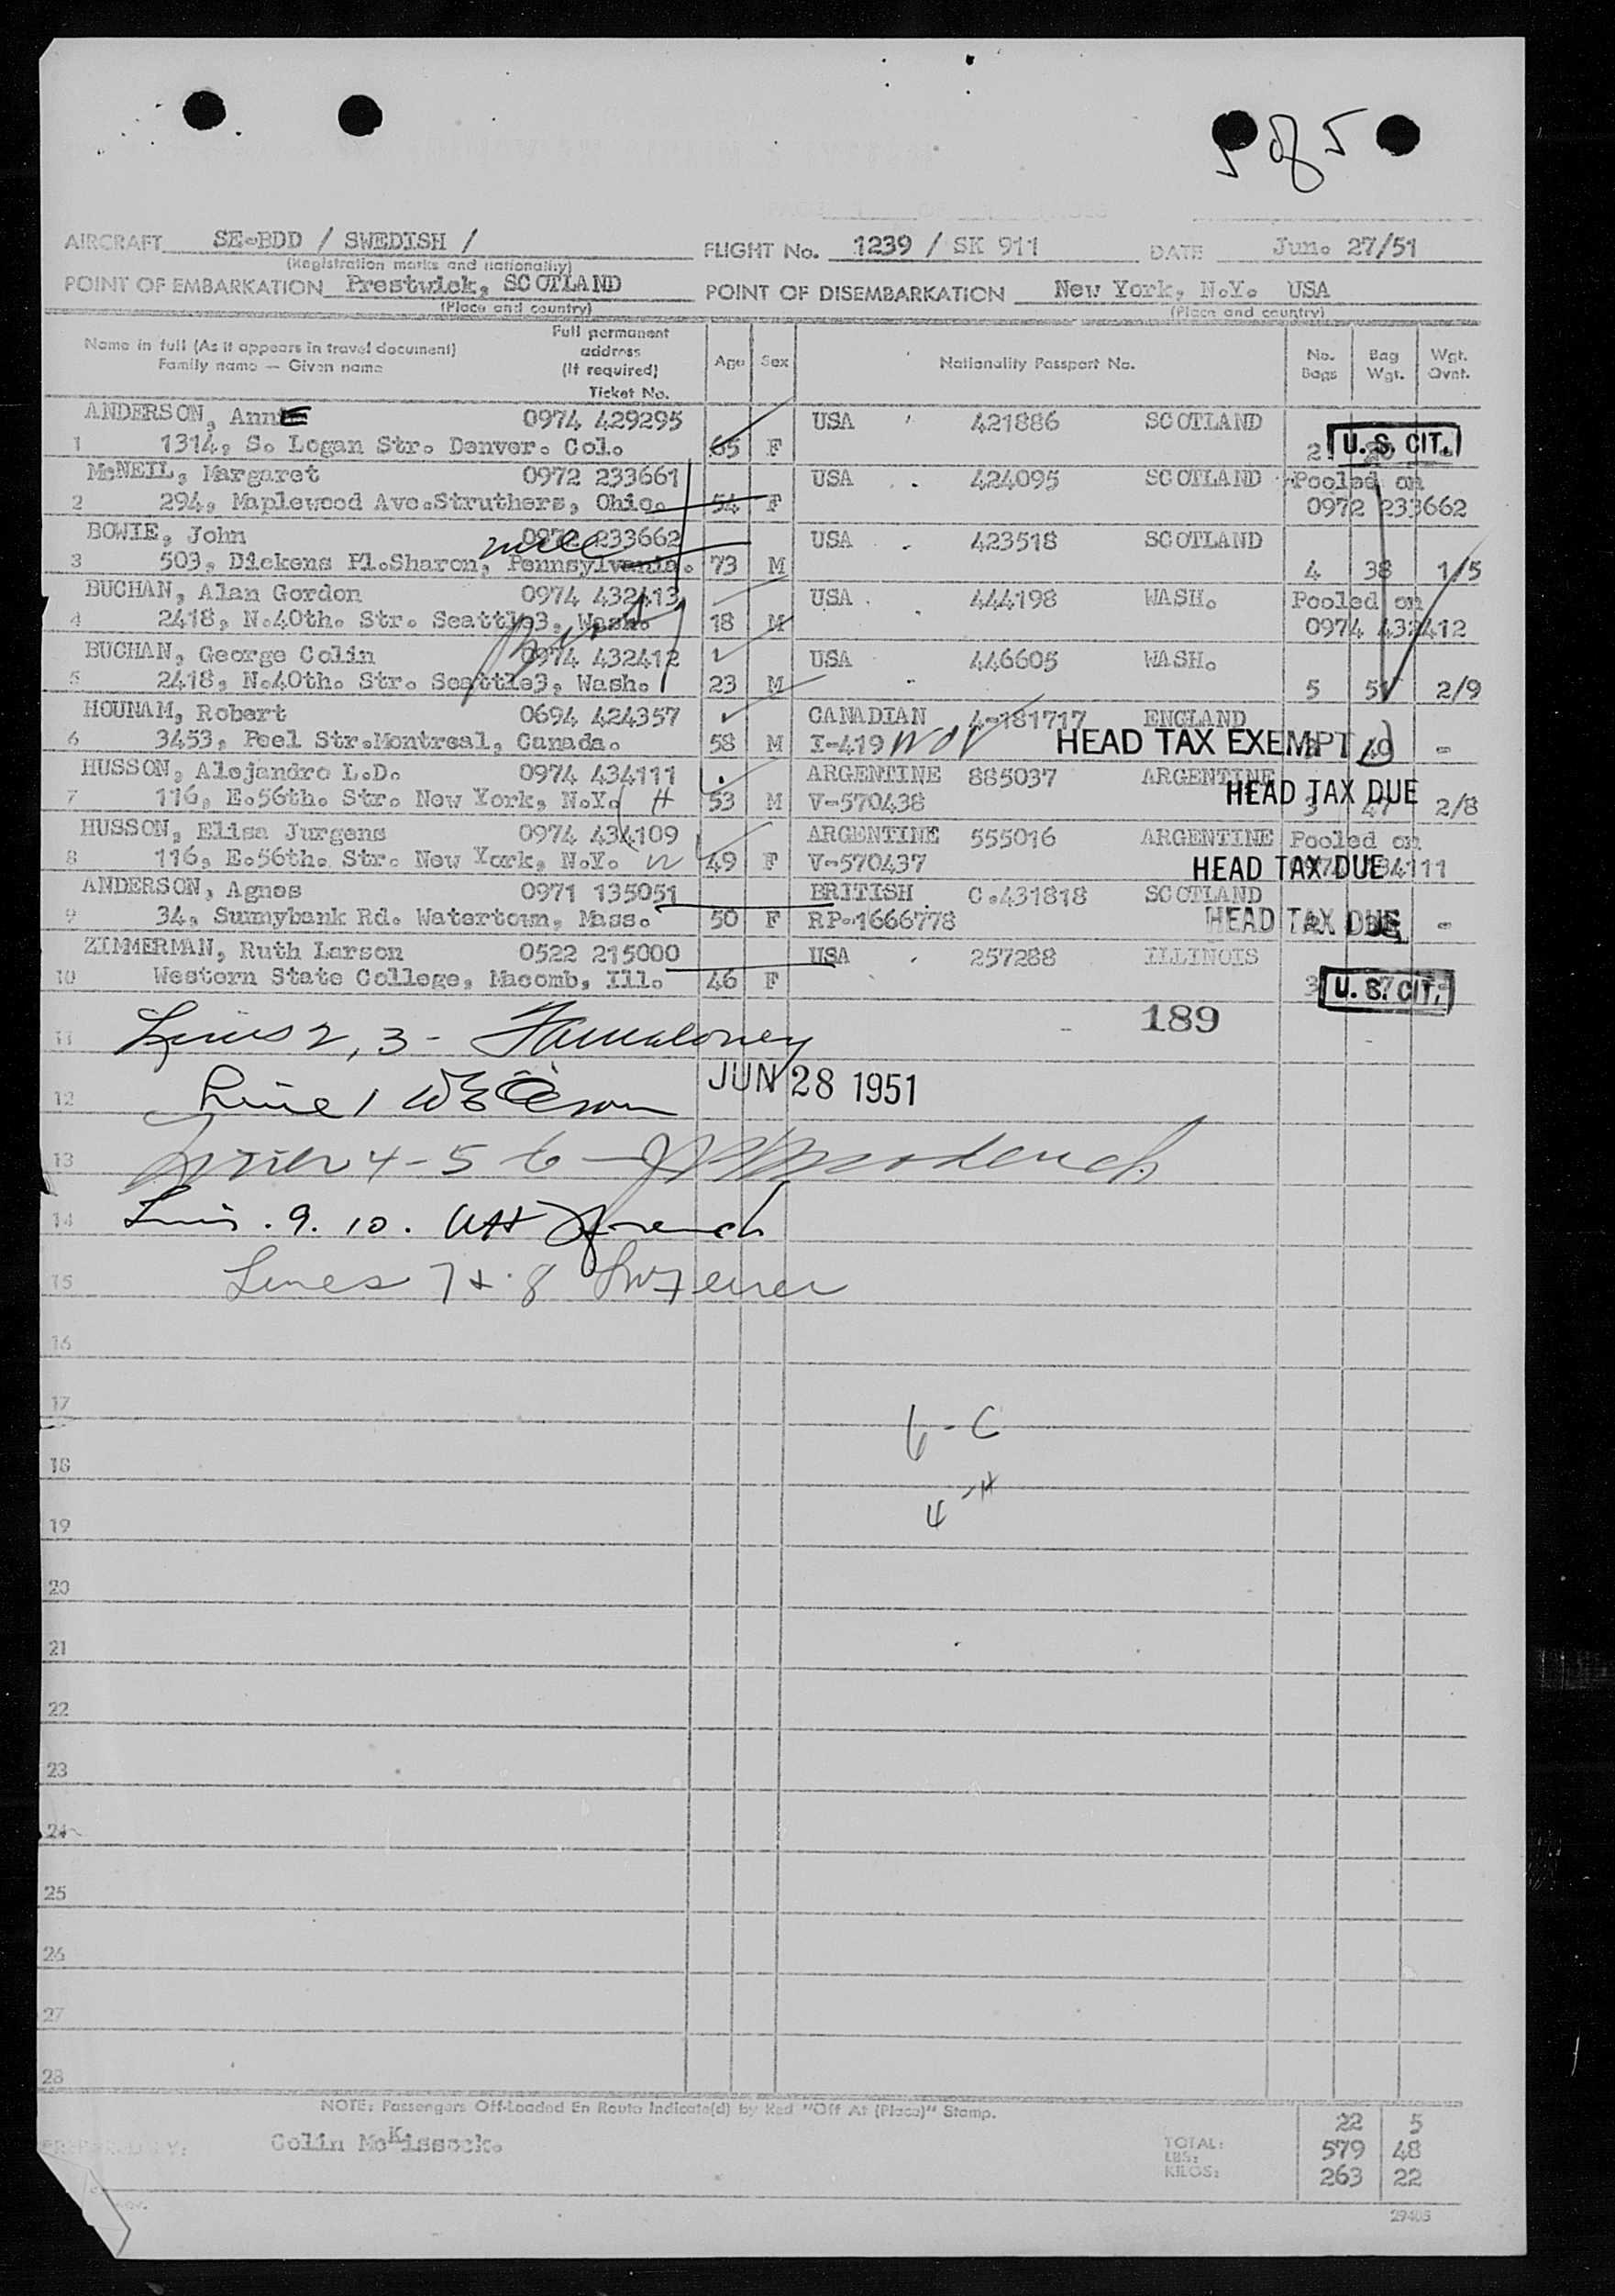 5 of 5
AIRCRAFT SE-BDD / SWEDISH / FLIGHT No. 1239 / SK 911 DATE Jun. 27/51
(Registration marks and nationality)
POINT OF EMBARKATION Prestwick, SCOTLAND POINT OF DISEMBARKATION New York, N.Y. USA
(Place and country) (Place and country)
Name in full (As it appears in travel document) Family name — Given name Full permanent address (If required) Ticket No. Age Sex Nationality Passport No. No. Bags Bag Wgt. Wgt. Ovnt.
ANDERSON, AnnE 0974 429295 USA 421886 SCOTLAND
1 1314, S. Logan Str. Denver. Col. 65 F 2 U. S. CIT.
McNEIL, Margaret 0972 233661 USA 424095 SCOTLAND Pooled on
2 294, Maplewood Ave.Struthers, Ohio. 54 F 0972 233662
BOWIE, John 0972 233662 USA 423518 SCOTLAND
3 503, Dickens Pl.Sharon, Pennsylvania. 73 M 4 38 1/5
BUCHAN, Alan Gordon 0974 432413 USA 444198 WASH. Pooled on
4 2418, N.40th. Str. Seattle3, Wash. 18 M 0974 432412
BUCHAN, George Colin 0974 432412 USA 446605 WASH.
5 2418, N.40th. Str. Seattle3, Wash. 23 M 5 51 2/9
HOUNAM, Robert 0694 424357 CANADIAN 4-181717 ENGLAND
6 3453, Peel Str.Montreal, Canada. 58 M I-419 HEAD TAX EXEMPT 49 -
HUSSON, Alejandro L.D. 0974 434111 ARGENTINE 885037 ARGENTINE
7 116, E.56th. Str. New York, N.Y. H 53 M V-570438 HEAD TAX DUE 3 47 2/8
HUSSON, Elisa Jurgens 0974 434109 ARGENTINE 555016 ARGENTINE Pooled on
8 116, E.56th. Str. New York, N.Y. W 49 F V-570437 HEAD TAX DUE 0974 434111
ANDERSON, Agnes 0971 135051 BRITISH C.431818 SCOTLAND
9 34, Sunnybank Rd. Watertown, Mass. 50 F RP-1666778 HEAD TAX DUE -
ZIMMERMAN, Ruth Larson 0522 215000 USA 257288 ILLINOIS
10 Western State College, Macomb, Ill. 46 F 3 U. S. CIT.
189
11 Lines 2, 3 -
JUN 28 1951
12 Line 1
13 Lines 4-5 6 -
14 Lines. 9. 10. French
15 Lines 7 & 8
16
17
6 - C
18
4 - H
19
20
21
22
23
24
25
26
27
28
NOTE: Passengers Off-Loaded En Route Indicate(d) by Red "Off At (Place)" Stamp.
PREPARED BY: Colin McKissock.
TOTAL: 22 5
LBS: 579 48
KILOS: 263 22
29405